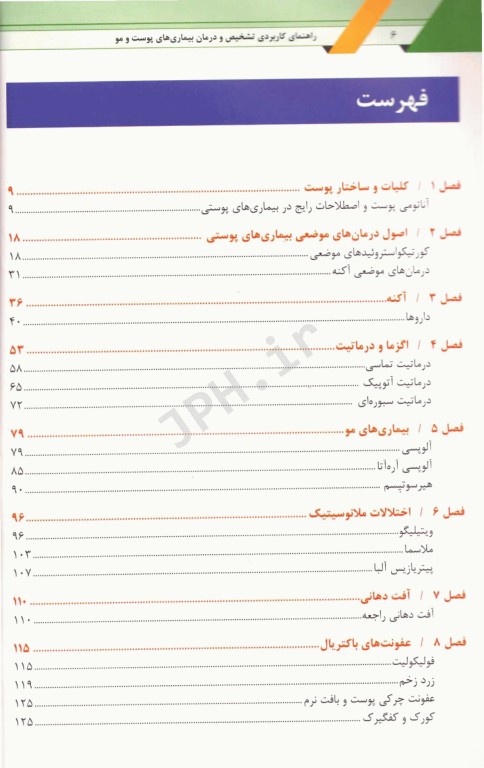 ۶ راهنمای کاربردی تشخیص و درمان بیماری‌های پوست و مو
فهرست
فصل ۱ / کلیات و ساختار پوست ۹
آناتومی پوست و اصطلاحات رایج در بیماری‌های پوستی ۹
فصل ۲ / اصول درمان‌های موضعی بیماری‌های پوستی ۱۸
کورتیکواستروئیدهای موضعی ۱۸
درمان‌های موضعی آکنه ۳۱
فصل ۳ / آکنه ۳۶
داروها ۴۰
فصل ۴ / اگزما و درماتیت ۵۳
درماتیت تماسی ۵۸
درماتیت آتوپیک ۶۵
درماتیت سبوره‌ای ۷۲
فصل ۵ / بیماری‌های مو ۷۹
آلوپسی ۷۹
آلوپسی آره‌آتا ۸۵
هیرسوتیسم ۹۰
فصل ۶ / اختلالات ملانوسیتیک ۹۶
ویتیلیگو ۹۶
ملاسما ۱۰۳
پیتریازیس آلبا ۱۰۷
فصل ۷ / آفت دهانی ۱۱۰
آفت دهانی راجعه ۱۱۰
فصل ۸ / عفونت‌های باکتریال ۱۱۵
فولیکولیت ۱۱۵
زرد زخم ۱۱۹
عفونت چرکی پوست و بافت نرم ۱۲۵
کورک و کفگیرک ۱۲۵
JPH.ir